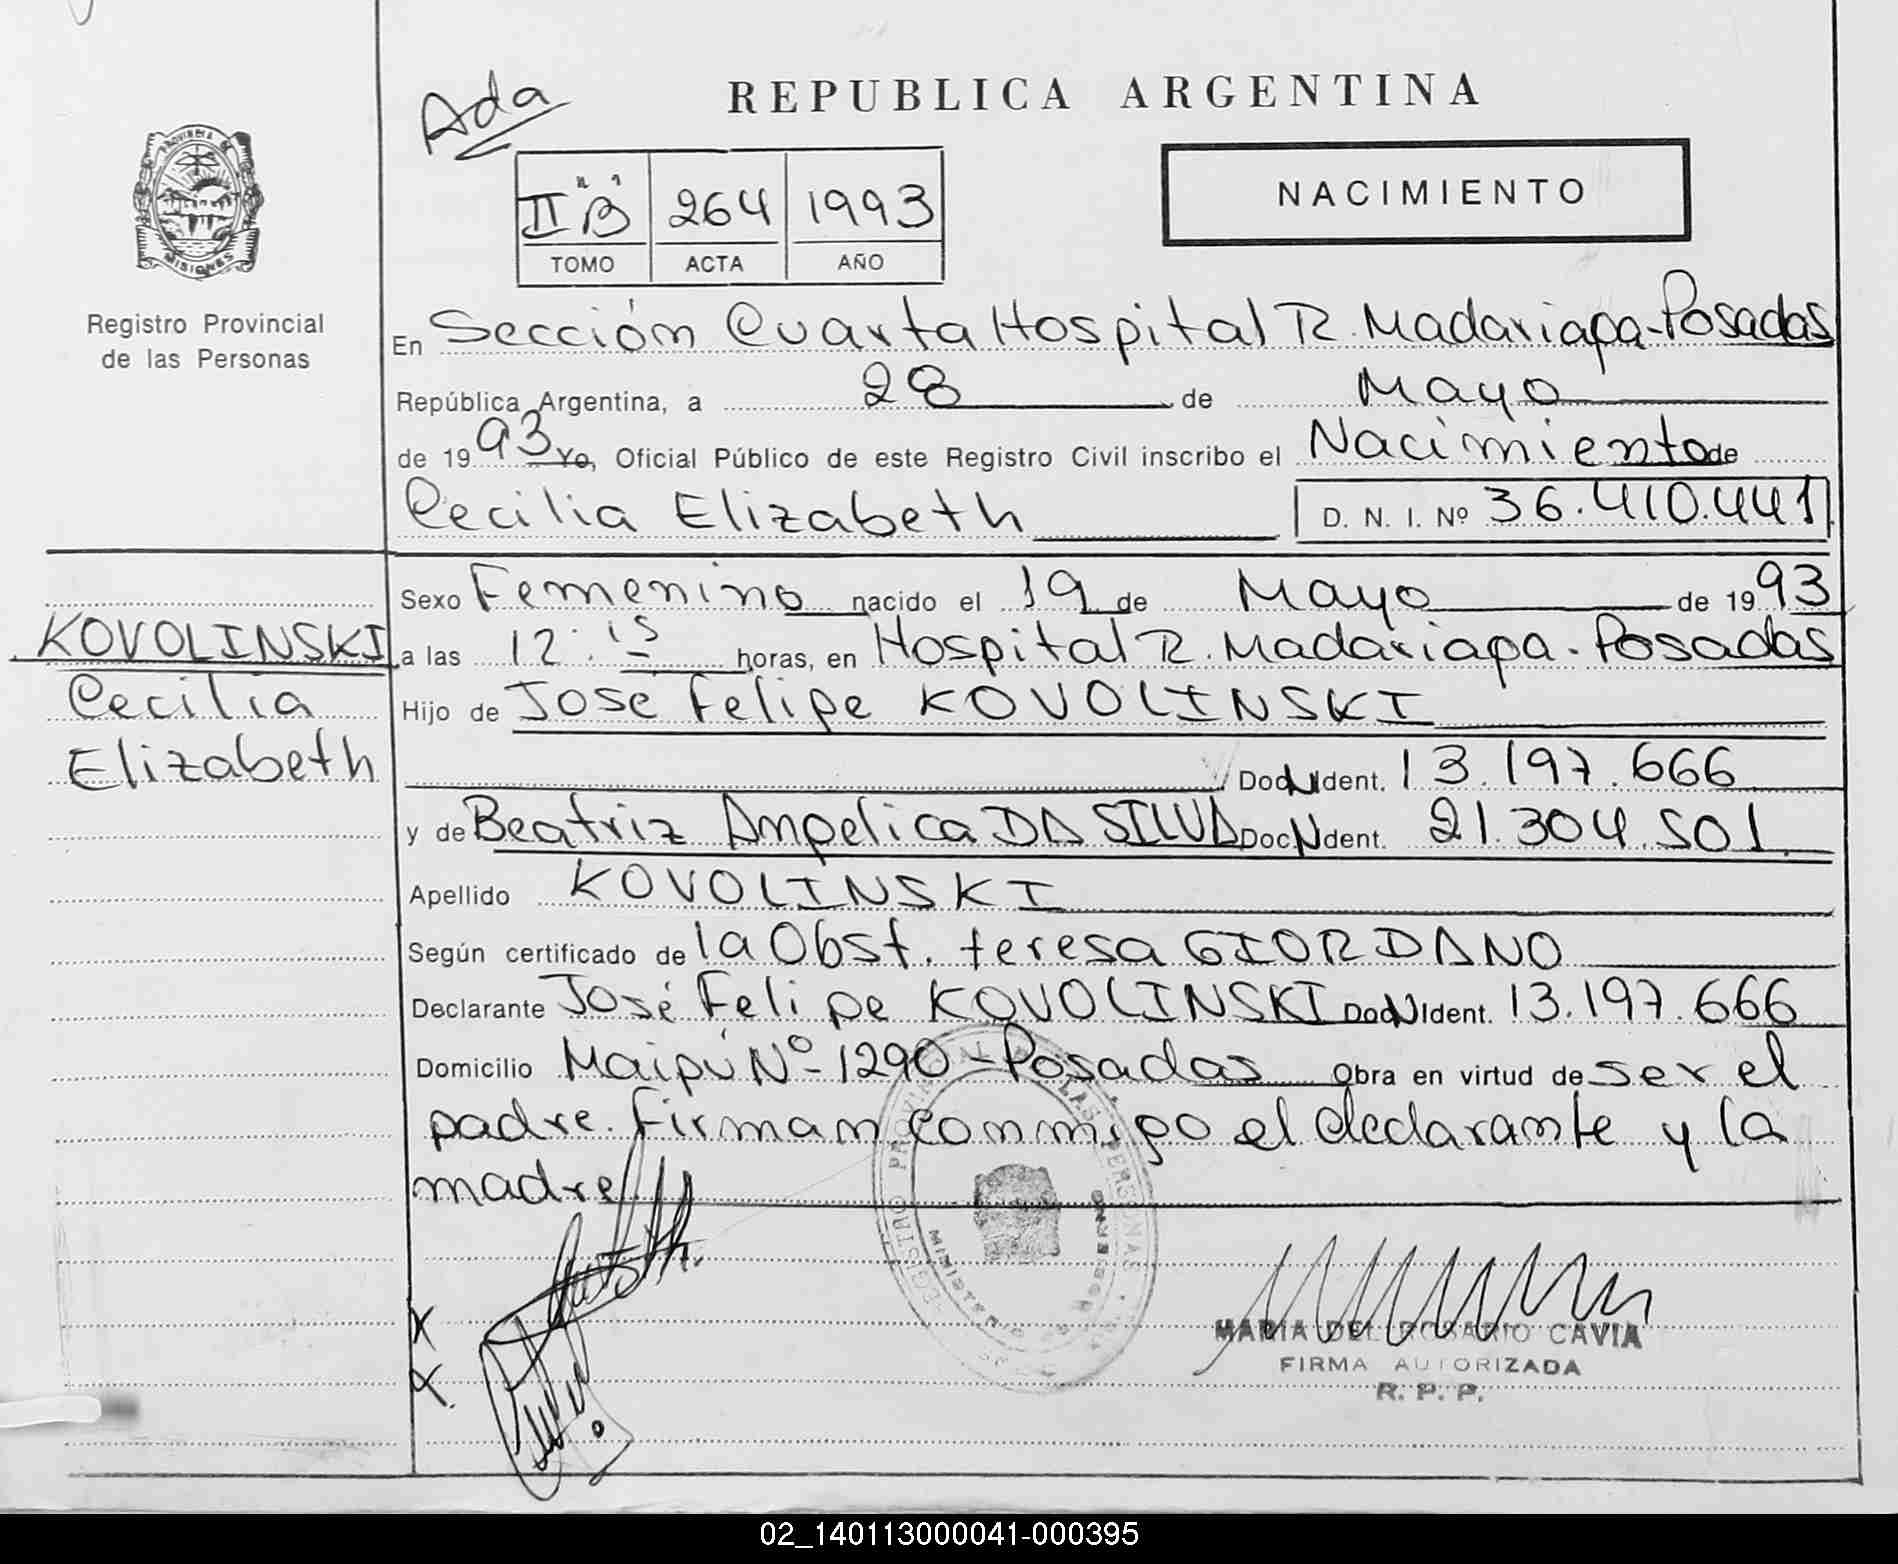 Ada
REPUBLICA ARGENTINA
PROVINCIA DE
MISIONES
II "B" 264 1993
TOMO ACTA AÑO
NACIMIENTO
Registro Provincial
de las Personas
En Sección Cuarta Hospital R. Madariaga-Posadas
República Argentina, a 28 de Mayo
de 1993 Yo, Oficial Público de este Registro Civil inscribo el Nacimiento de
Cecilia Elizabeth D. N. I. Nº 36.410.441
KOVOLINSKI
Cecilia
Elizabeth
Sexo Femenino nacido el 19 de Mayo de 1993
a las 12:15 horas, en Hospital R. Madariaga. Posadas
Hijo de José Felipe KOVOLINSKI
Doc N Ident. 13.197.666
y de Beatriz Angelica DA SILVA Doc N Ident. 21.304.501
Apellido KOVOLINSKI
Según certificado de la Obst. teresa GIORDANO
Declarante José Felipe KOVOLINSKI Doc N Ident. 13.197.666
Domicilio Maipú Nº 1290-Posadas Obra en virtud de ser el
padre. Firman conmigo el declarante y la
madre
REGISTRO PROVINCIAL DE LAS PERSONAS
MINISTERIO DE GOBIERNO
X
X
MARIA DEL ROSARIO CAVIA
FIRMA AUTORIZADA
R. P. P.
02_140113000041-000395